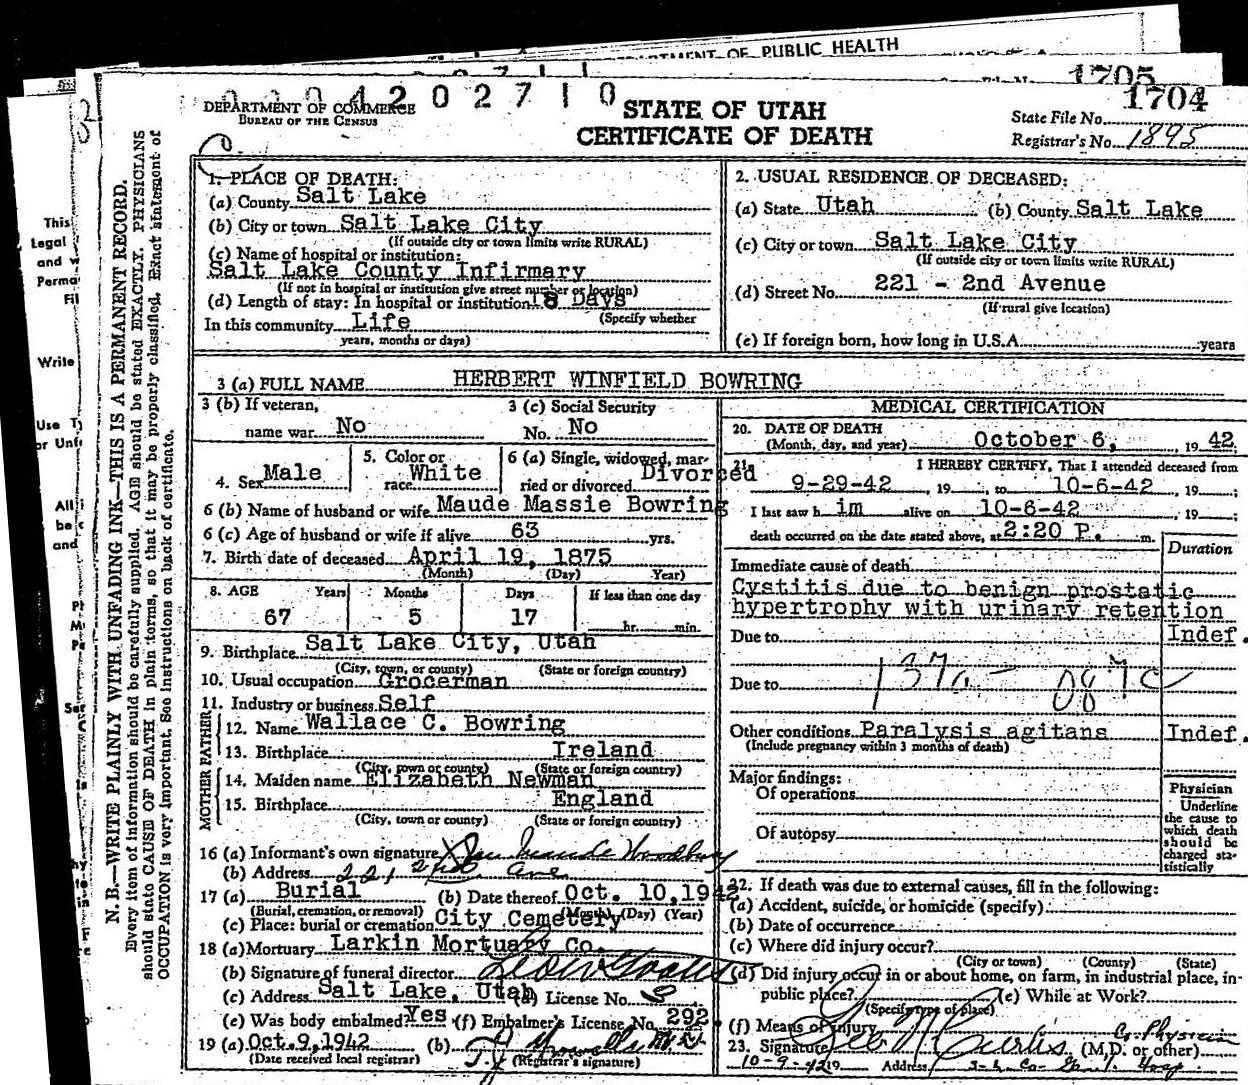 DEPARTMENT OF PUBLIC HEALTH
1705
0 0 4 2 0 2 7 1 0
1704
DEPARTMENT OF COMMERCE
BUREAU OF THE CENSUS
STATE OF UTAH
CERTIFICATE OF DEATH
State File No.
Registrar's No. 1895
N. B.—WRITE PLAINLY WITH UNFADING INK—THIS IS A PERMANENT RECORD.
Every item of information should be carefully supplied. AGE should be stated EXACTLY. PHYSICIANS
should state CAUSE OF DEATH in plain terms, so that it may be properly classified. Exact statement of
OCCUPATION is very important. See instructions on back of certificate.
This
Legal
and
Perma
Fil
Write
Use
or Unf
All
be
and
1. PLACE OF DEATH:
(a) County Salt Lake
(b) City or town Salt Lake City
(If outside city or town limits write RURAL)
(c) Name of hospital or institution:
Salt Lake County Infirmary
(If not in hospital or institution give street number or location)
(d) Length of stay: In hospital or institution 18 Days
(Specify whether
In this community Life
years, months or days)
2. USUAL RESIDENCE OF DECEASED:
(a) State Utah (b) County Salt Lake
(c) City or town Salt Lake City
(If outside city or town limits write RURAL)
(d) Street No. 221 - 2nd Avenue
(If rural give location)
(e) If foreign born, how long in U.S.A. years
3 (a) FULL NAME HERBERT WINFIELD BOWRING
3 (b) If veteran,
name war No
3 (c) Social Security
No. No
4. Sex Male
5. Color or
race White
6 (a) Single, widowed, mar-
ried or divorced Divorced
6 (b) Name of husband or wife Maude Massie Bowring
6 (c) Age of husband or wife if alive 63 yrs.
7. Birth date of deceased April 19, 1875
(Month) (Day) Year)
8. AGE Years Months Days If less than one day
67 5 17 hr. min.
9. Birthplace Salt Lake City, Utah
(City, town, or county) (State or foreign country)
10. Usual occupation Grocerman
11. Industry or business Self
FATHER
12. Name Wallace C. Bowring
13. Birthplace Ireland
(City, town or county) (State or foreign country)
MOTHER
14. Maiden name Elizabeth Newman
15. Birthplace England
(City, town or county) (State or foreign country)
16 (a) Informant's own signature Maude Woodbury
(b) Address 221 2nd Ave
17 (a) Burial (b) Date thereof Oct. 10, 1942
(Burial, cremation, or removal) (Month) (Day) (Year)
(c) Place: burial or cremation City Cemetery
18 (a) Mortuary Larkin Mortuary Co.
(b) Signature of funeral director
(c) Address Salt Lake, Utah (d) License No.
(e) Was body embalmed? Yes (f) Embalmer's License No. 292
19 (a) Oct. 9, 1942 (b)
(Date received local registrar) (Registrar's signature)
MEDICAL CERTIFICATION
20. DATE OF DEATH
(Month, day, and year) October 6, 19 42.
21. I HEREBY CERTIFY, That I attended deceased from
9-29-42, 19 , to 10-6-42, 19 ;
I last saw h im alive on 10-6-42, 19 ;
death occurred on the date stated above, at 2:20 P. m.
Duration
Immediate cause of death
Cystitis due to benign prostatic
hypertrophy with urinary retention
Due to Indef.
Due to 137a 087c
Other conditions Paralysis agitans Indef.
(Include pregnancy within 3 months of death)
Major findings:
Of operations
Of autopsy
Physician
Underline
the cause to
which death
should be
charged sta-
tistically
22. If death was due to external causes, fill in the following:
(a) Accident, suicide, or homicide (specify)
(b) Date of occurrence
(c) Where did injury occur?
(City or town) (County) (State)
(d) Did injury occur in or about home, on farm, in industrial place, in
public place? (e) While at Work?
(Specify type of place)
(f) Means of injury Co. Physician
23. Signature Curtis (M.D. or other)
10-9-42 19 Address S-L Co- Gen. Hosp